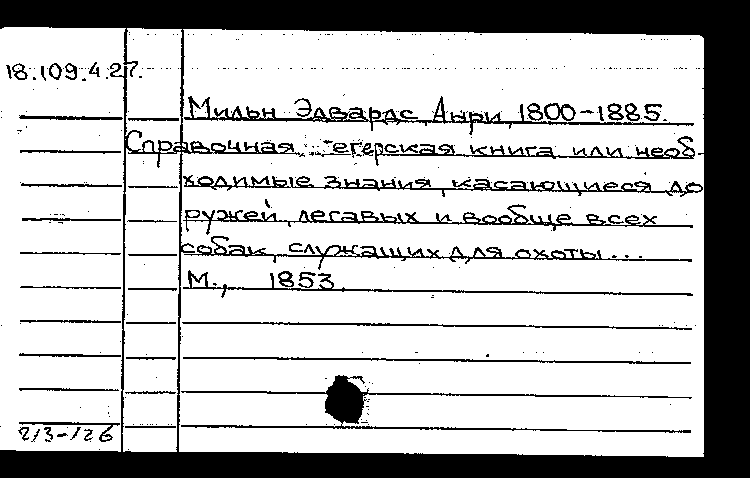 18.109.4.27.
Мильн Эдвардс, Анри, 1800-1885.
Справочная егерская книга или необ-
ходимые знания, касающиеся до
ружей, легавых и вообще всех
собак, служащих для охоты...
М., 1853.
213-126